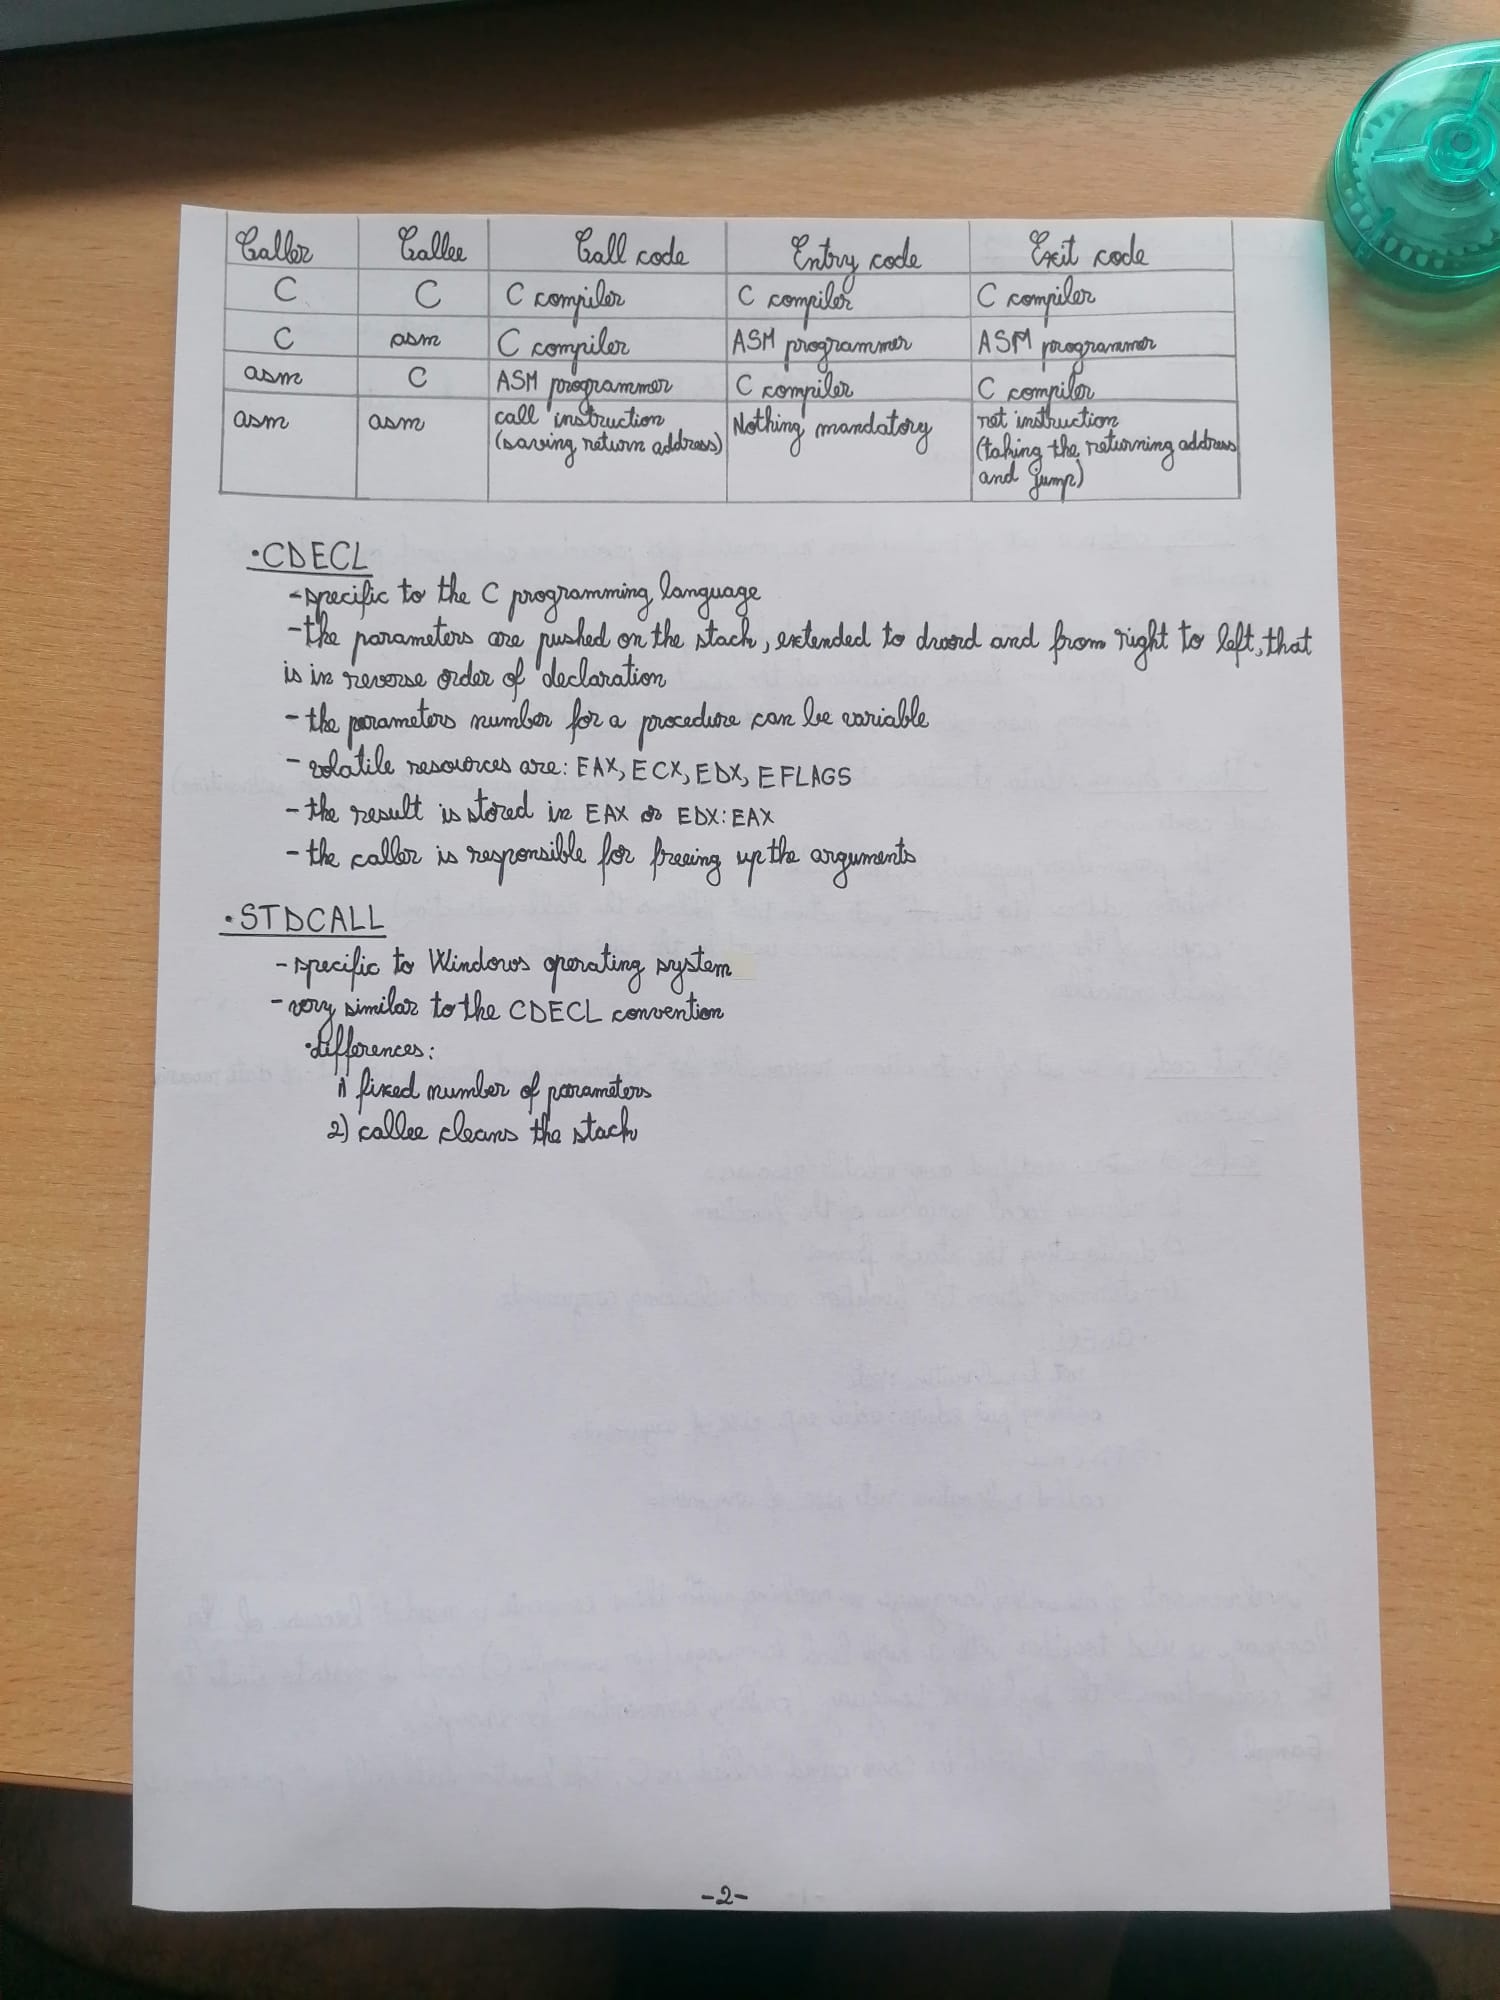 Caller Callee Call code Entry code Exit code
C C C compiler C compiler C compiler
C asm C compiler ASM programmer ASM programmer
asm C ASM programmer C compiler C compiler
asm asm call instruction Nothing mandatory ret instruction
(saving return address) (taking the returning address
and jump)
•CDECL
-specific to the C programming language
-the parameters are pushed on the stack, extended to dword and from right to left, that
is in reverse order of declaration
-the parameters number for a procedure can be variable
-volatile resources are: EAX, ECX, EDX, EFLAGS
-the result is stored in EAX or EDX:EAX
-the caller is responsible for freeing up the arguments
•STDCALL
-specific to Windows operating system
-very similar to the CDECL convention
•differences:
1) fixed number of parameters
2) callee cleans the stack
-2-